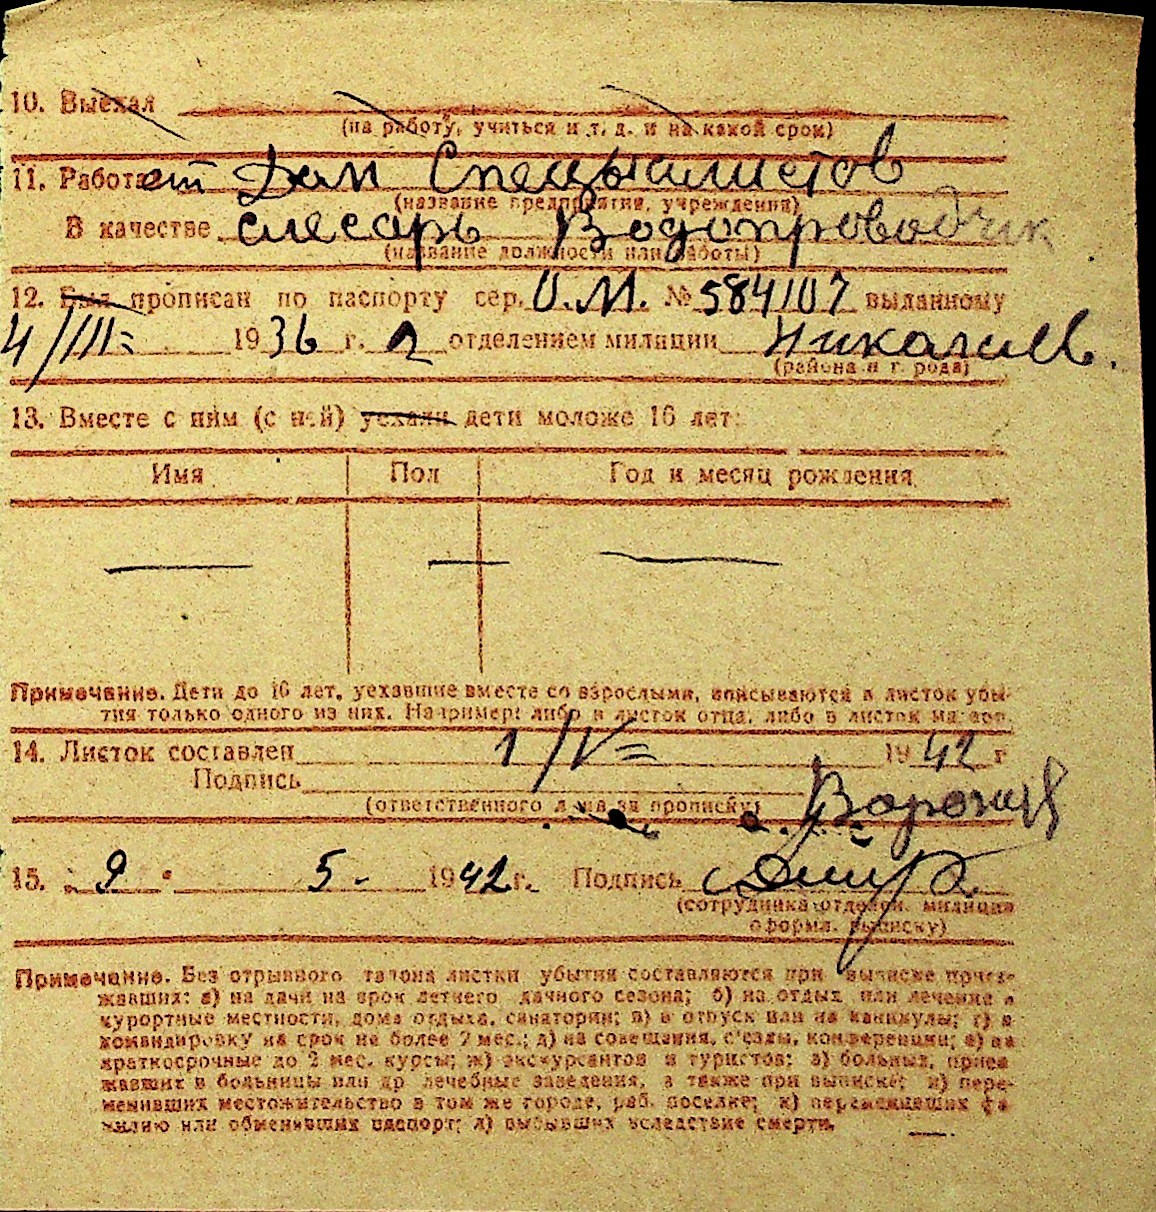 10. Выехал
(на работу, учиться и т. д. и на какой срок)
11. Работает Дом Специалистов
(название предприятия, учреждения)
В качестве слесарь Водопроводчик
(название должности или работы)
12. Был прописан по паспорту сер. О.М. № 584107 выданному
4/III= 1936 г. 2 отделением милиции Николаев.
(района и города)
13. Вместе с ним (с ней) уехали дети моложе 16 лет:
Имя Пол Год и месяц рождения
— — —
Примечание. Дети до 16 лет, уехавшие вместе со взрослыми, вписываются в листок убы-
тия только одного из них. Например: либо в листок отца, либо в листок матери.
14. Листок составлен 1/V= 1942 г
Подпись
(ответственного лица за прописку)
15. 9 5 - 1942 г. Подпись
(сотрудника отделен. милиции
оформл. выписку)
Примечание. Без отрывного талона листки убытия составляются при выписке приез-
жавших: а) на дачи на срок летнего дачного сезона; б) на отдых или лечение в
курортные местности, дома отдыха, санатории; в) в отпуск или на каникулы; г) в
командировку на срок не более 2 мес.; д) на совещания, с'езды, конференции; е) на
краткосрочные до 2 мес. курсы; ж) экскурсантов и туристов; з) больных, приез
жавших в больницы или др лечебные заведения, а также при выписке; и) пере-
менивших местожительство в том же городе, раб. поселке; к) переменивших фа
милию или обменивших паспорт; л) выбывших вследствие смерти.